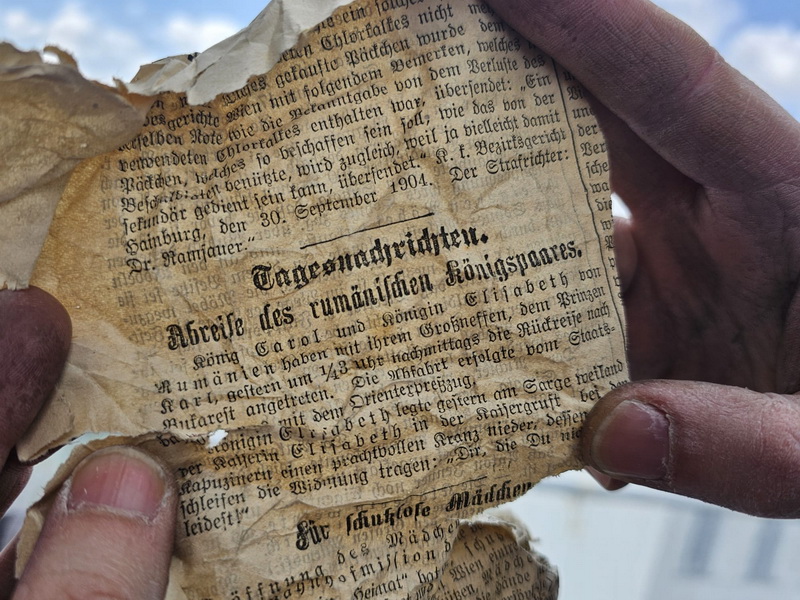 nicht
Chlorkalkes
gekaufte Päckchen wurde dem
Bezirksgerichte Wien mit folgendem Bemerken, welches
derselben Note wie die Bekanntgabe von dem Verluste des
verwendeten Chlorkalkes enthalten war, übersendet: „Ein
Päckchen, welches so beschaffen sein soll, wie das von der
benützte, wird zugleich, weil ja vielleicht damit
sekundär gedient sein kann, übersendet.“ K. k. Bezirksgericht
Hainburg, den 30. September 1904. Der Strafrichter:
Dr. Ramsauer.“
Tagesnachrichten.
Abreise des rumänischen Königspaares.
König Carol und Königin Elisabeth von
Rumänien haben mit ihrem Großneffen, dem Prinzen
Karl, gestern um 1/43 Uhr nachmittags die Rückreise nach
Bukarest angetreten. Die Abfahrt erfolgte vom Staats-
mit dem Orienterpreßzug.
Königin Elisabeth legte gestern am Sarge weiland
der Kaiserin Elisabeth in der Kaisergruft bei den
Kapuzinern einen prachtvollen Kranz nieder, dessen
Schleifen die Widmung tragen: „Dir, die Du nie
leidest!“
Für schutzlose Mädchen
des Mädchen
Bahnhofmission
Heimat“ Wien